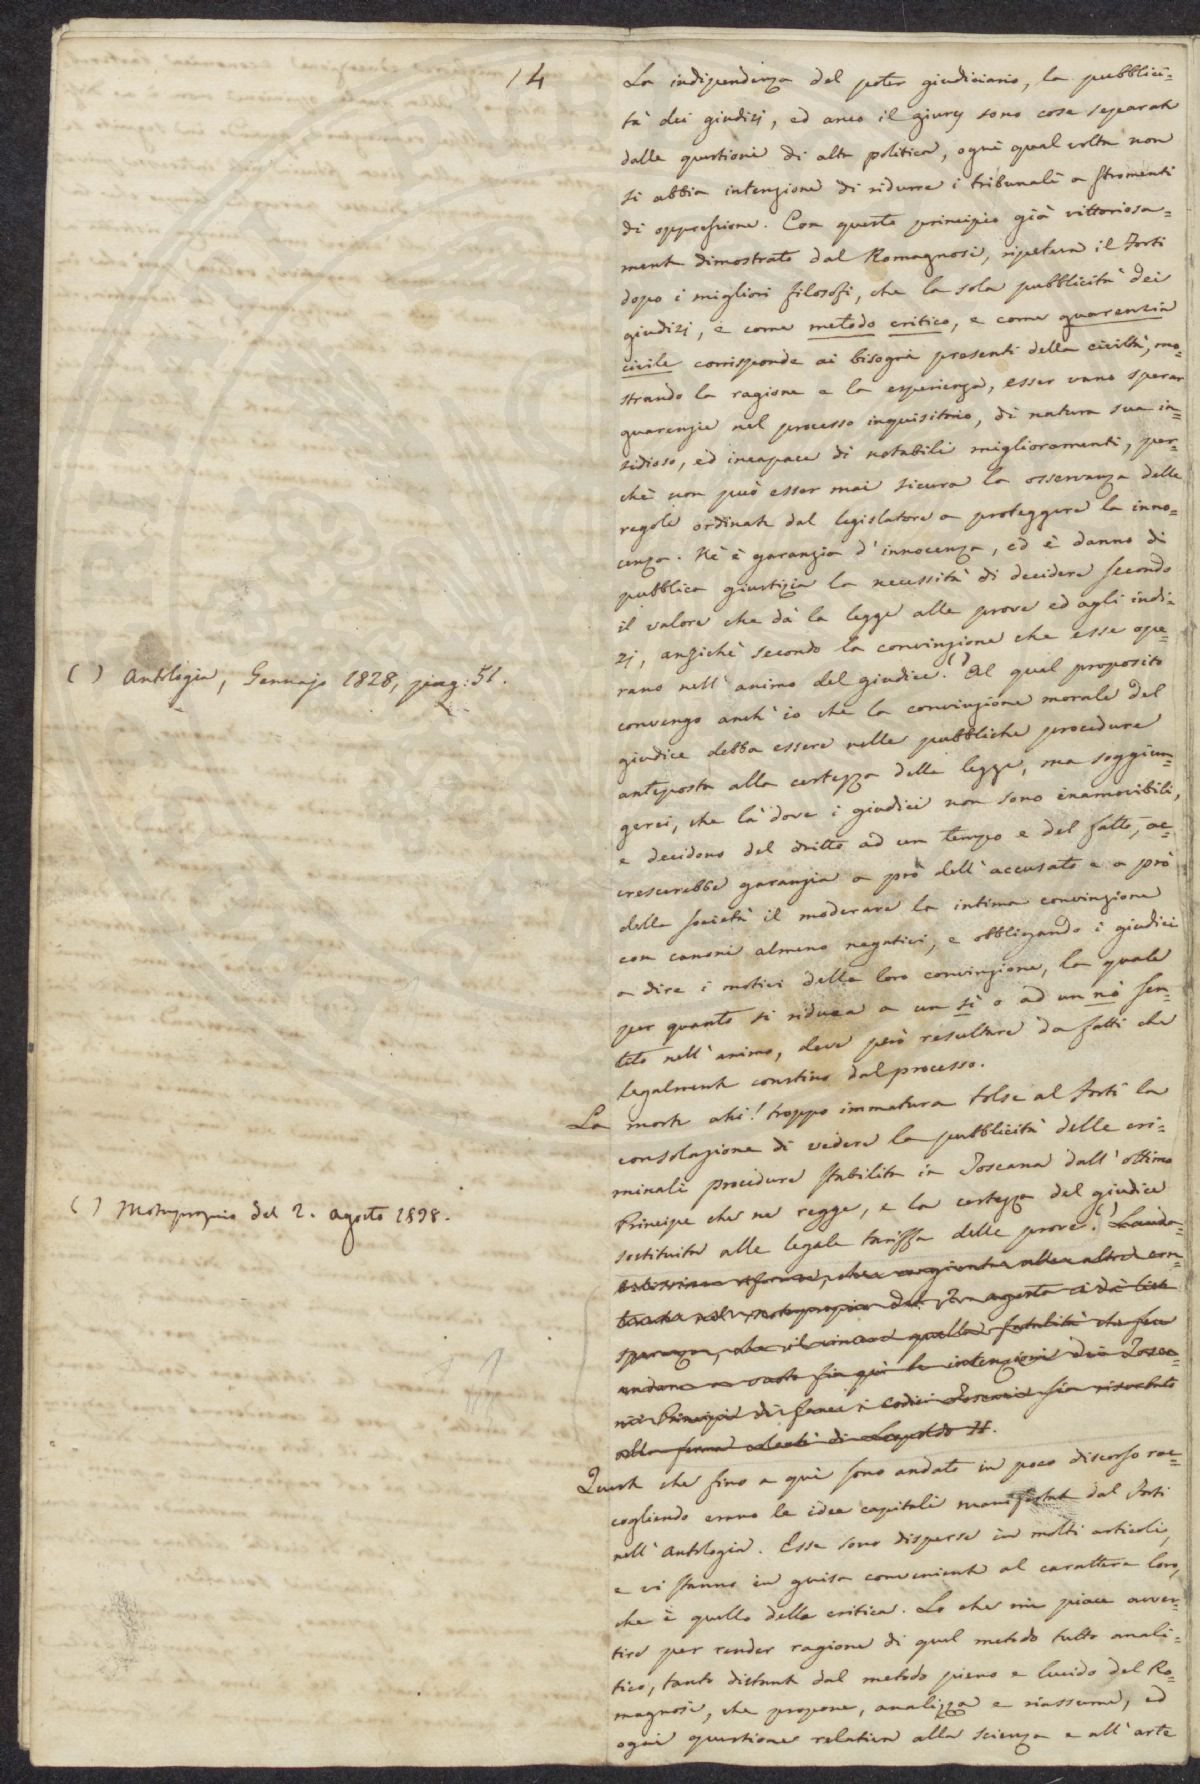 14
La indipendenza del poter giudiciario, la pubblici=
tà dei giudizj, ed anco il giury sono cose separate
dalle questioni di alta politica, ogni qual volta non
si abbia intenzione di ridurre i tribunali a stromenti
di oppressione. Con questo principio già vittoriosa=
mente dimostrato dal Romagnosi, ripeteva il Forti
dopo i migliori filosofi, che la sola pubblicità dei
giudizj, e come metodo critico, e come guarenzia
civile corrisponde ai bisogni presenti della civiltà, mo=
strando la ragione e la esperienza, esser vano sperar
guarenzie nel processo inquisitorio, di natura sua in=
sidioso, ed incapace di notabili miglioramenti, per=
chè non può esser mai sicura la osservanza delle
regole ordinate dal legislatore a proteggere la inno=
cenza. Nè è garanzia d'innocenza, ed è danno di
pubblica giustizia la necessità di decidere secondo
il valore che dà la legge alle prove ed agli indi=
zj, anzichè secondo la convinzione che esse ope=
rano nell'animo del giudice. ( ) Al qual proposito
( ) Antologia, Gennajo 1828, pag: 51.
convengo anch'io che la convinzione morale del
giudice debba essere nelle pubbliche procedure
anteposta alla certezza della legge, ma soggiun=
gerei, che là dove i giudici non sono inamovibili,
e decidono del dritto ad un tempo e del fatto, ac=
crescerebbe garanzia a prò dell'accusato e a prò
della società il moderare la intima convinzione
con canoni almeno negativi, e obbligando i giudici
a dire i motivi della loro convinzione, la quale
per quanto si riduca a un sì o ad un nò sen=
tito nell'animo, deve però resultare da fatti che
legalmente constino dal processo.
La morte ahi! troppo immatura tolse al Forti la
consolazione di vedere la pubblicità delle cri=
minali procedure stabilita in Toscana dall'ottimo
Principe che ne regge, e la certezza del giudice
( ) Motuproprio del 2. agosto 1838.
sostituita alle legale tariffa delle prove. ( ) Lauda=
riforma, che congiunta alle altre con=
nel motuproprio del agosto ci dà
speranza, che quella fatalità che fece
andare a vuoto fin quì le intenzioni dei Tosca=
ni Principi di fare i Codici Toscani sia
alla ferma volontà di Leopoldo II.
Queste che fino a quì sono andato in poco discorso rac=
cogliendo erano le idee capitali manifestate dal Forti
nell'Antologia. Esse sono disperse in molti articoli,
e vi stanno in guisa conveniente al carattere loro,
che è quello della critica. Lo che mi piace avver=
tire per render ragione di quel metodo tutto anali=
tico, tanto distante dal metodo pieno e lucido del Ro=
magnosi, che propone, analizza e riassume, ed
ogni questione relativa alla scienza e all'arte